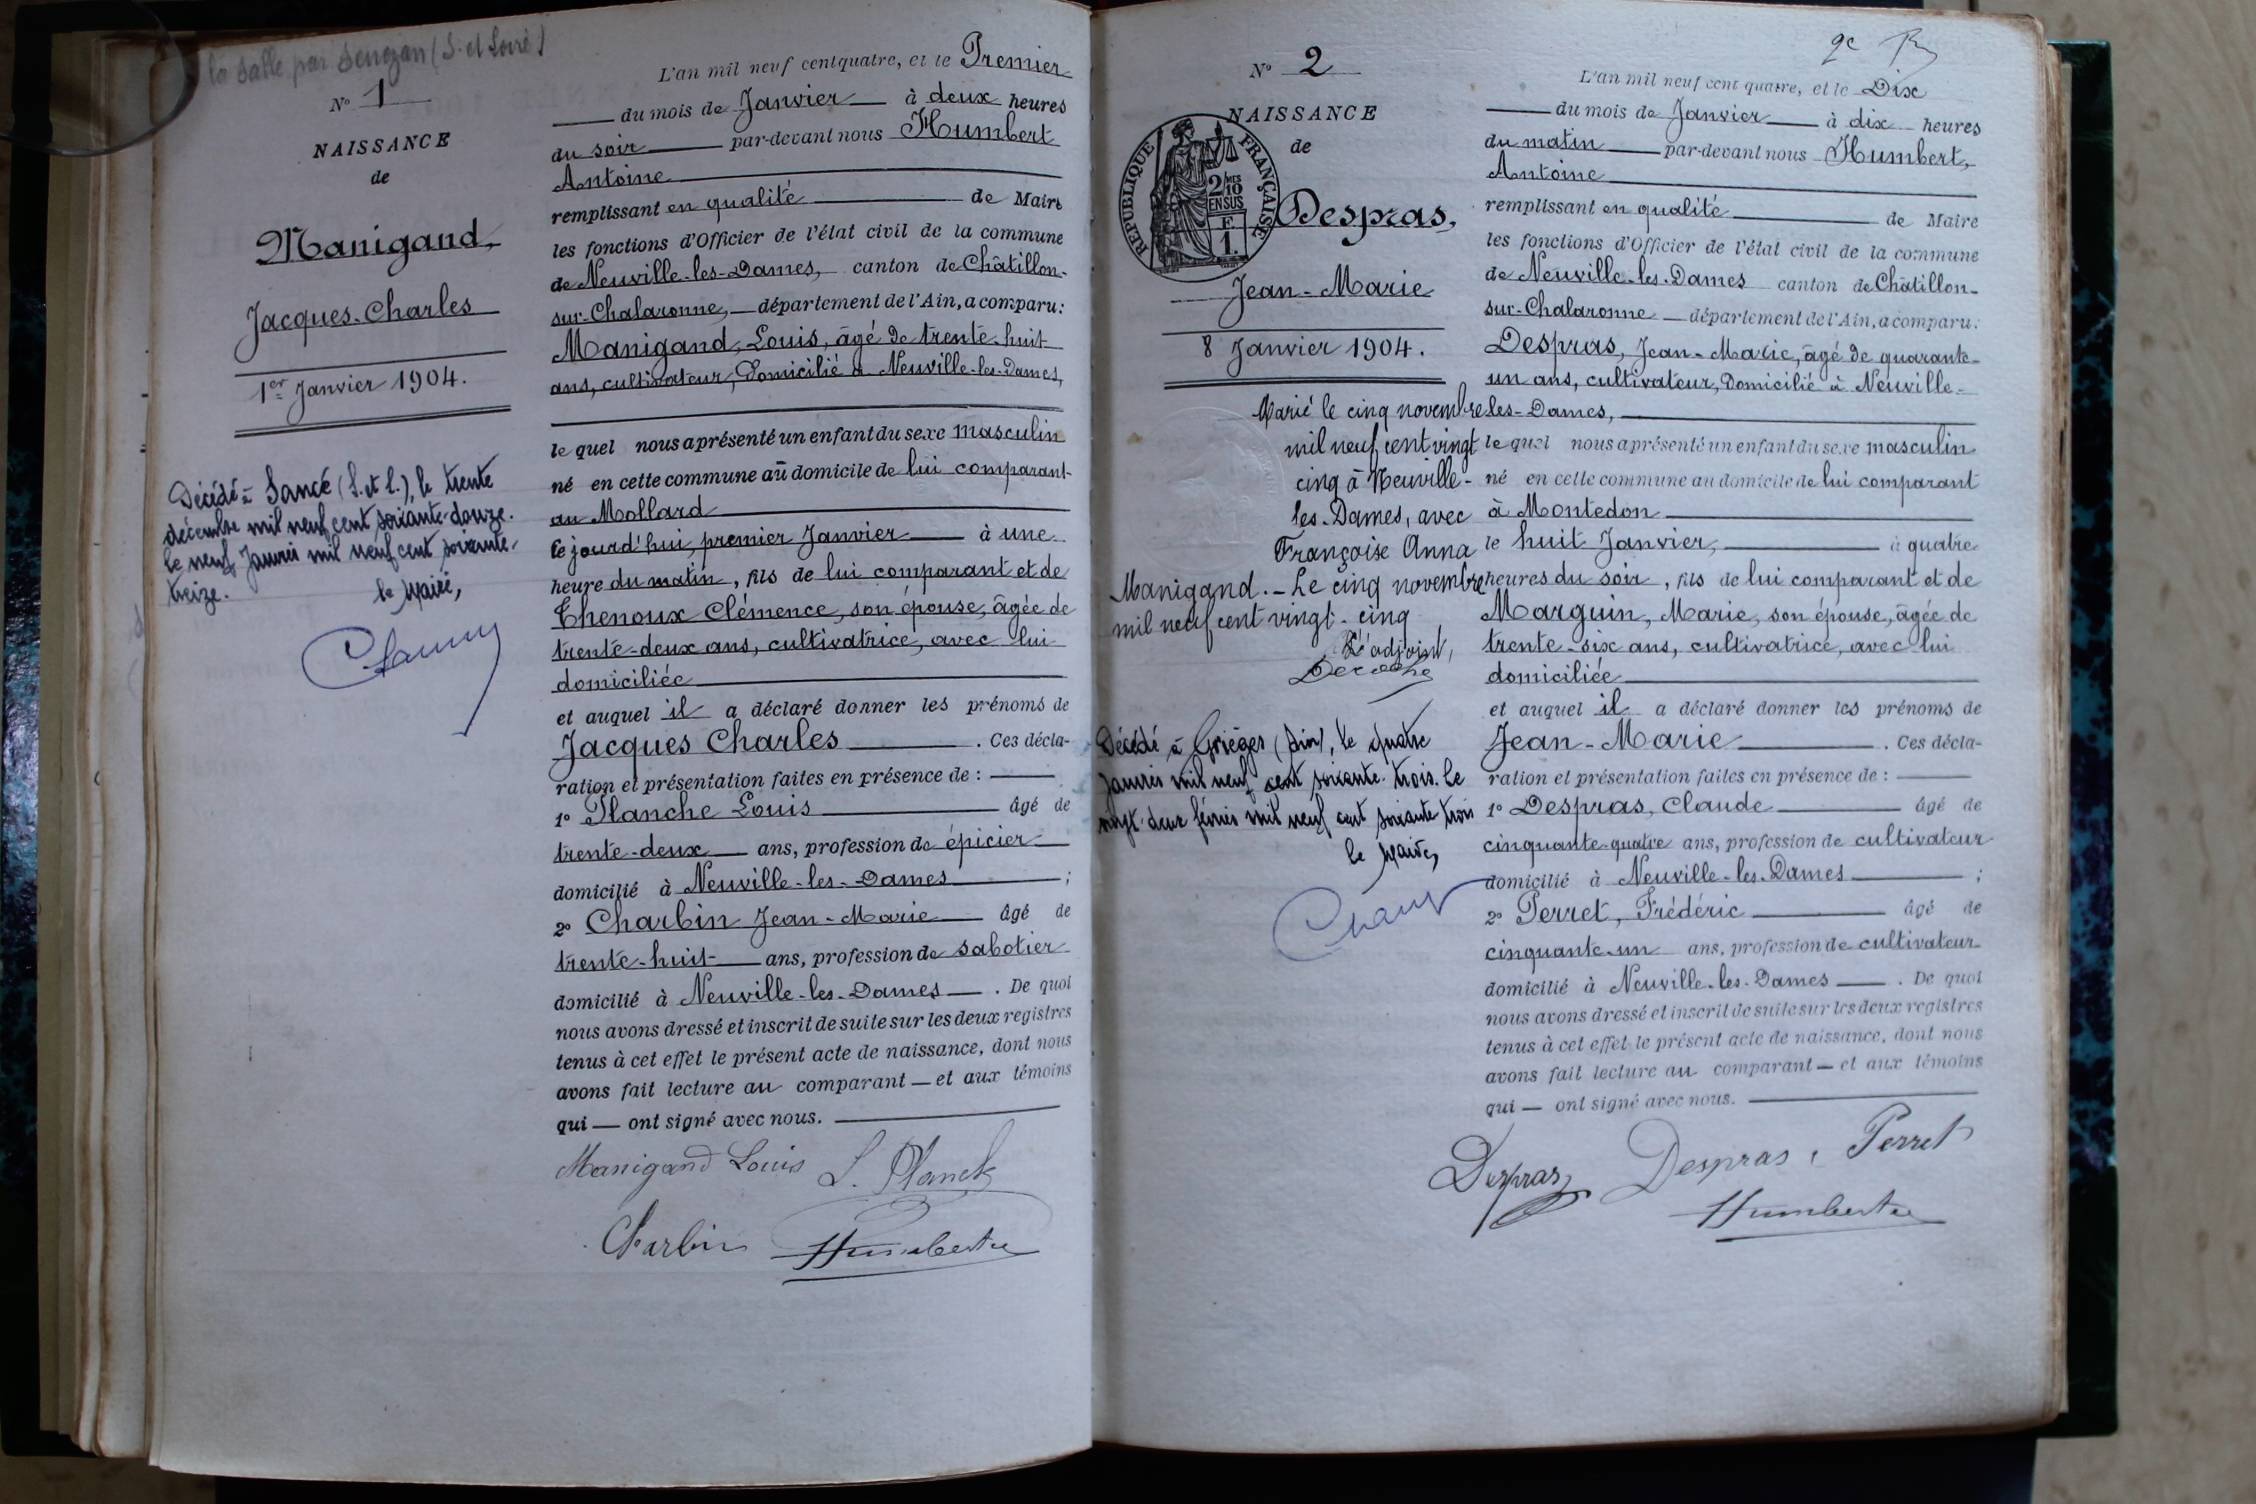 la Salle par Senozan (S. et Loire)
N° 1
NAISSANCE
de
Manigand,
Jacques-Charles
1er Janvier 1904.
Décédé à Sancé (S. et L.), le trente
décembre mil neuf cent soixante-douze.
le neuf Janvier mil neuf cent soixante-
treize.
le Maire,
L'an mil neuf cent quatre, et le Premier
du mois de Janvier à deux heures
du soir par-devant nous Humbert
Antoine
remplissant en qualité de Maire
les fonctions d'Officier de l'état civil de la commune
de Neuville-les-Dames, canton de Châtillon-
sur-Chalaronne, département de l'Ain, a comparu:
Manigand, Louis, âgé de trente-huit
ans, cultivateur, domicilié à Neuville-les-Dames,
le quel nous a présenté un enfant du sexe masculin
né en cette commune au domicile de lui comparant
au Mollard
ce jourd'hui, premier Janvier à une
heure du matin, fils de lui comparant et de
Thenoux Clémence, son épouse, âgée de
trente-deux ans, cultivatrice, avec lui
domiciliée
et auquel il a déclaré donner les prénoms de
Jacques Charles . Ces décla-
ration et présentation faites en présence de :
1° Planche Louis âgé de
trente-deux ans, profession de épicier
domicilié à Neuville-les-Dames ;
2° Charbin Jean-Marie âgé de
trente-huit ans, profession de sabotier
domicilié à Neuville-les-Dames . De quoi
nous avons dressé et inscrit de suite sur les deux registres
tenus à cet effet le présent acte de naissance, dont nous
avons fait lecture au comparant — et aux témoins
qui — ont signé avec nous.
Manigand Louis L. Planche
Charbin Humbert
N° 2
NAISSANCE
de
REPUBLIQUE FRANÇAISE
2 MES
10
EN SUS
F
1.
Despras,
Jean-Marie
8 Janvier 1904.
Marié le cinq novembre
mil neuf cent vingt
cinq à Neuville-
les-Dames, avec
Françoise Anna
Manigand. - Le cinq novembre
mil neuf cent vingt-cinq
L'adjoint,
Deroche
Décédé à Grièges (Ain), le quatre
Janvier mil neuf cent soixante-trois. Le
vingt-deux février mil neuf cent soixante trois
le Maire,
2e
L'an mil neuf cent quatre, et le Dix
du mois de Janvier à dix heures
du matin par-devant nous Humbert,
Antoine
remplissant en qualité de Maire
les fonctions d'Officier de l'état civil de la commune
de Neuville-les-Dames canton de Châtillon-
sur-Chalaronne département de l'Ain, a comparu:
Despras, Jean-Marie, âgé de quarante-
un ans, cultivateur, domicilié à Neuville-
les-Dames,
le quel nous a présenté un enfant du sexe masculin
né en cette commune au domicile de lui comparant
à Montedon
le huit Janvier, à quatre
heures du soir, fils de lui comparant et de
Marguin, Marie, son épouse, âgée de
trente-six ans, cultivatrice, avec lui
domiciliée
et auquel il a déclaré donner les prénoms de
Jean-Marie . Ces décla-
ration et présentation faites en présence de :
1° Despras, Claude âgé de
cinquante-quatre ans, profession de cultivateur
domicilié à Neuville-les-Dames ;
2° Perret, Frédéric âgé de
cinquante-un ans, profession de cultivateur
domicilié à Neuville-les-Dames . De quoi
nous avons dressé et inscrit de suite sur les deux registres
tenus à cet effet le présent acte de naissance, dont nous
avons fait lecture au comparant — et aux témoins
qui — ont signé avec nous.
Despras Despras Perret
Humbert